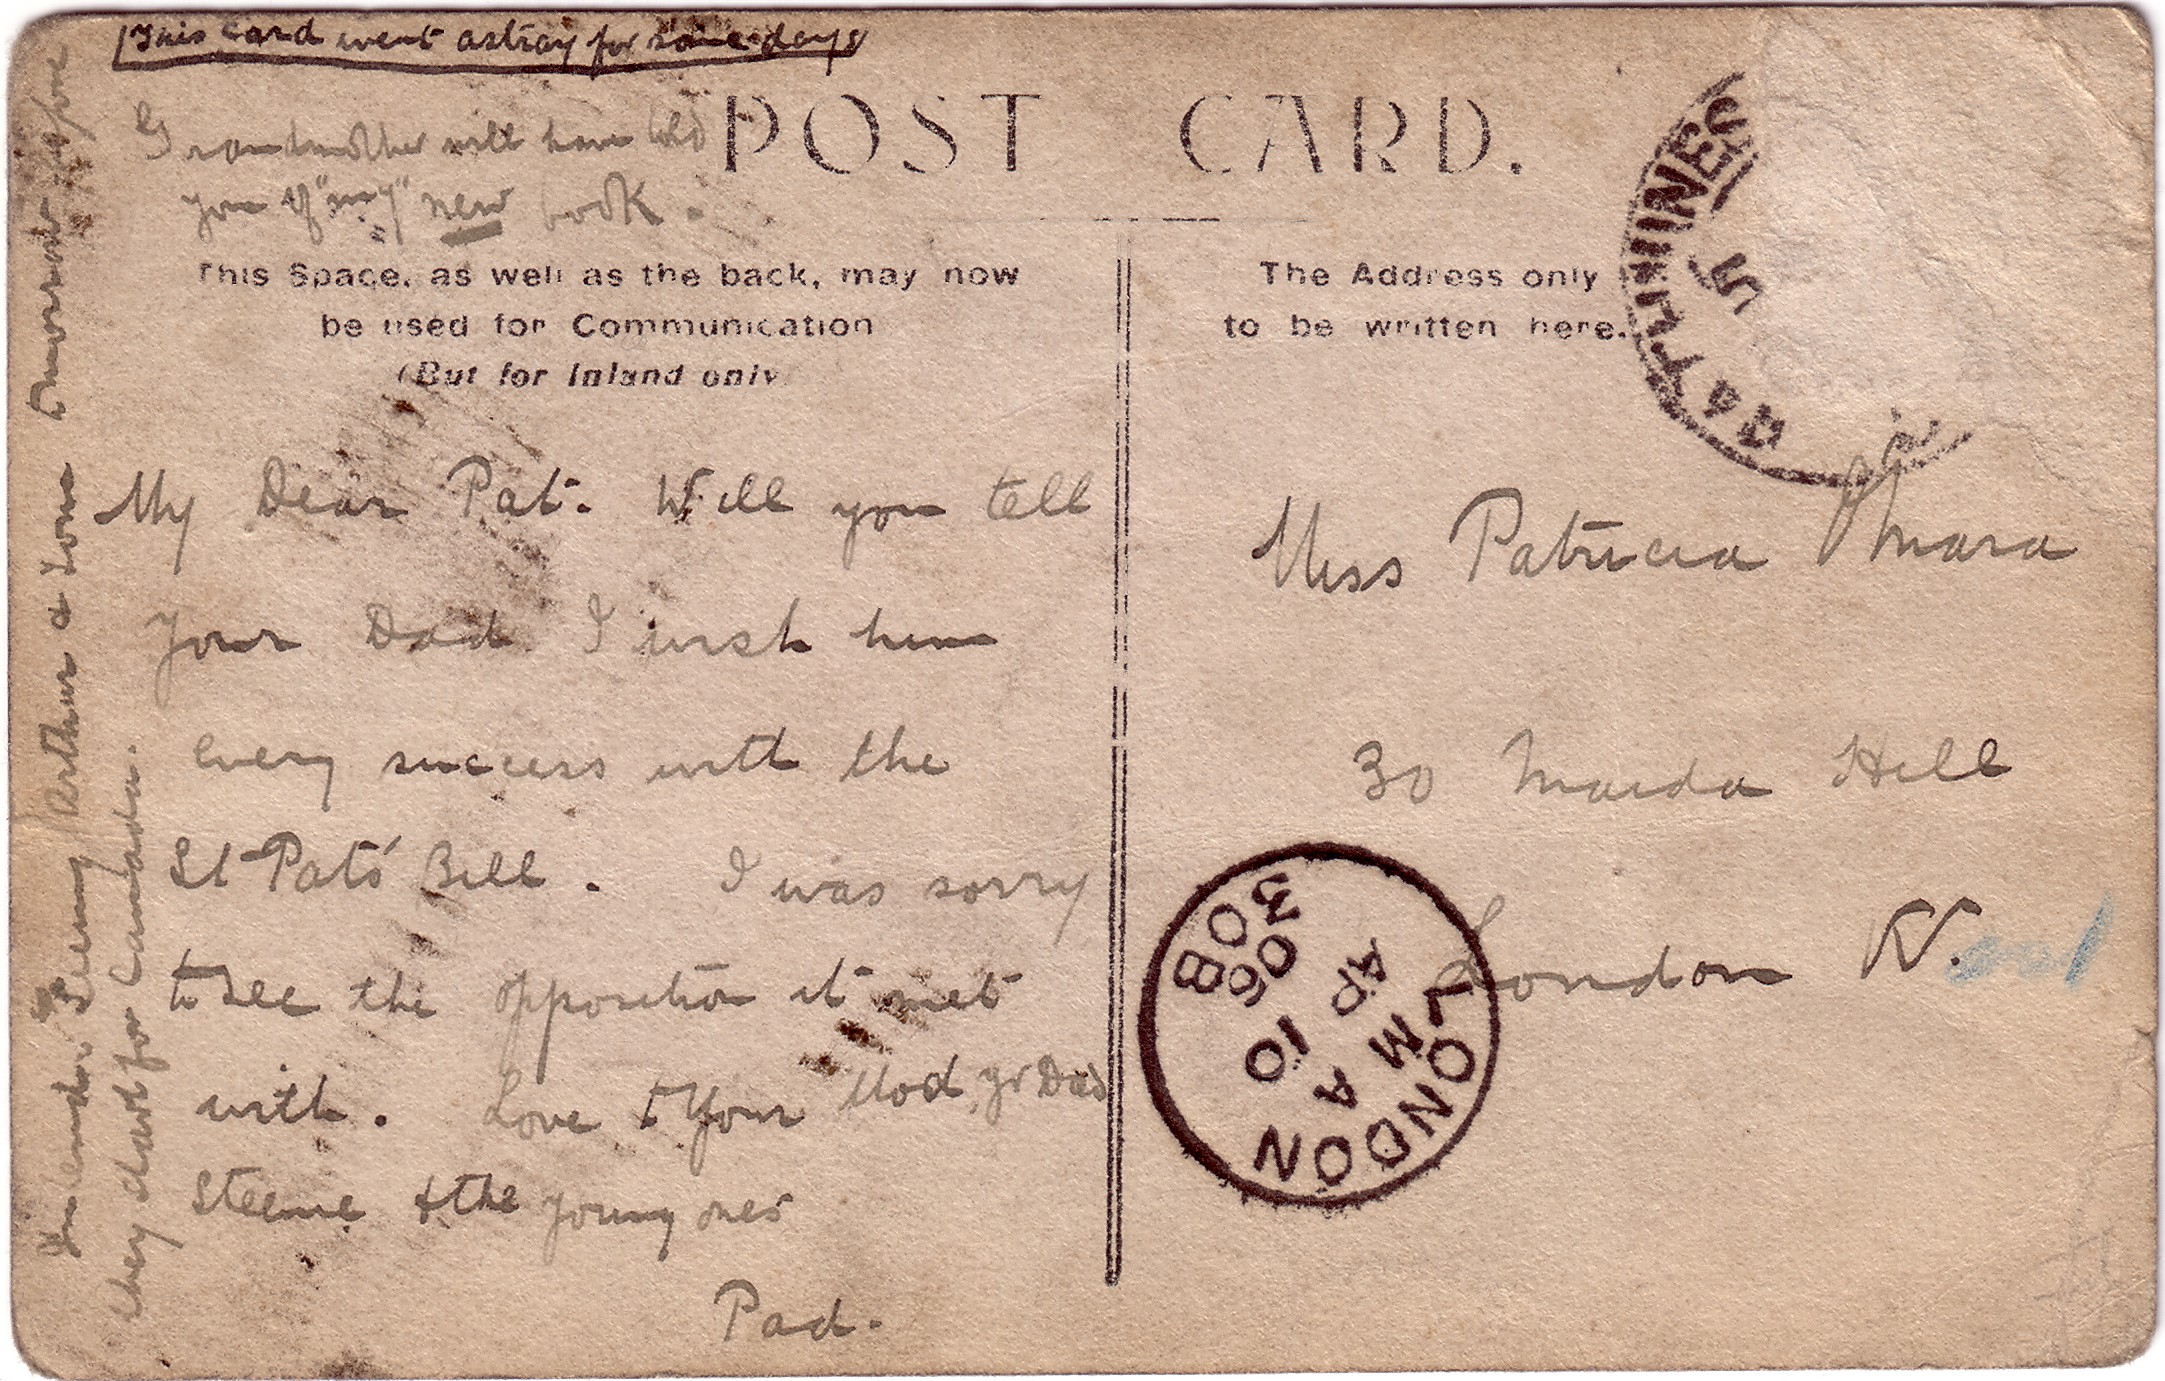 This card went astray for some days
Grandmother will have told
you of "my" new book.
POST CARD.
This Space, as well as the back, may now
be used for Communication
(But for Inland only
The Address only
to be written here.
My Dear Pat. Will you tell
Your Dad I wish him
every success with the
St Pat's Bill. I was sorry
to see the opposition it met
with. Love to Your Mod, yr Dad
& the young ones
Pad.
Arthur & Tom tomorrow before
they start for Canada.
Miss Patricia O'Mara
30 Maida Hill
London W.
RATHMINES
5
LONDON
A
M
AP 30
06